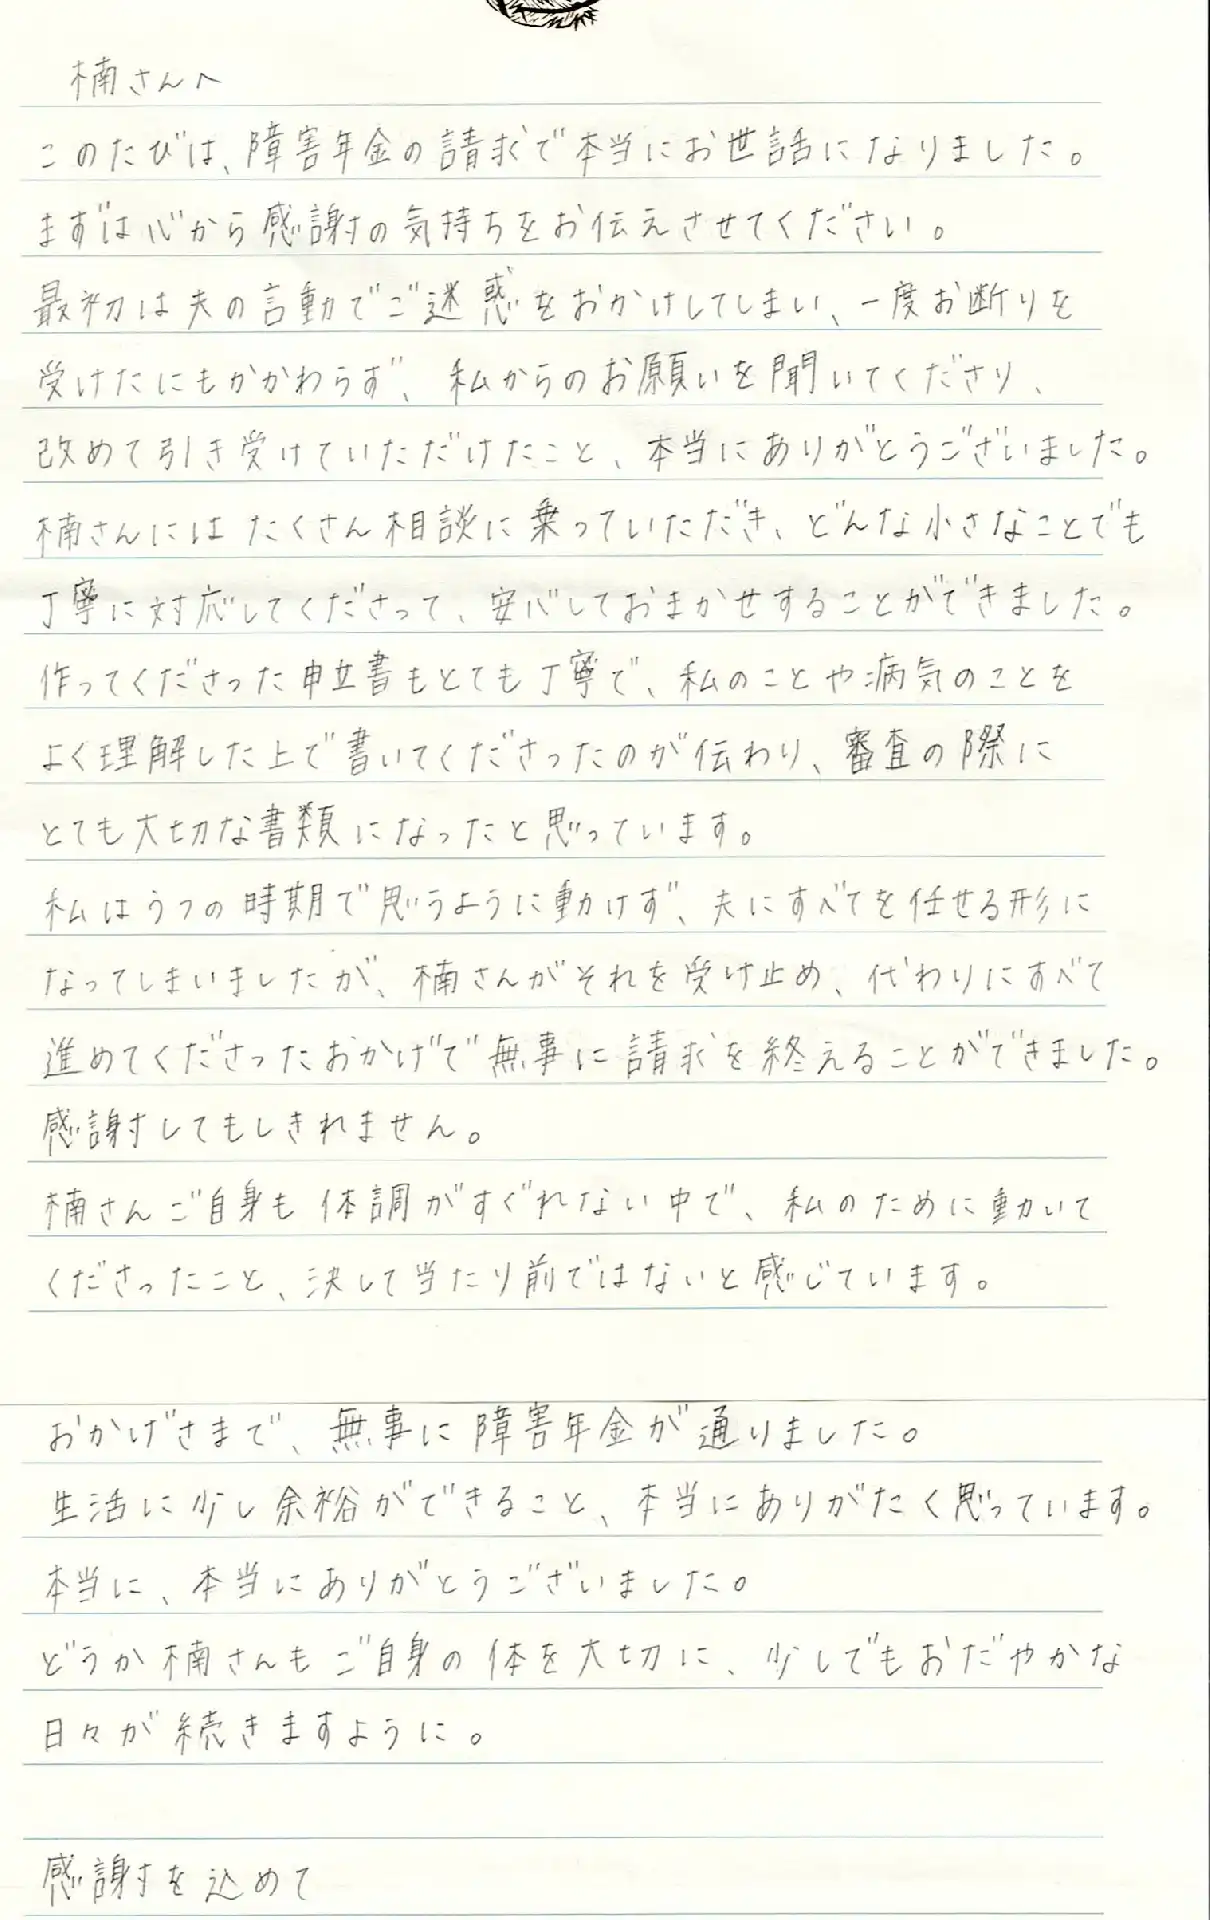 楠さんへ
このたびは、障害年金の請求で本当にお世話になりました。
まずは心から感謝の気持ちをお伝えさせてください。
最初は夫の言動でご迷惑をおかけしてしまい、一度お断りを
受けたにもかかわらず、私からのお願いを聞いてくださり、
改めて引き受けていただけたこと、本当にありがとうございました。
楠さんにはたくさん相談に乗っていただき、どんな小さなことでも
丁寧に対応してくださって、安心しておまかせすることができました。
作ってくださった申立書もとても丁寧で、私のことや病気のことを
よく理解した上で書いてくださったのが伝わり、審査の際に
とても大切な書類になったと思っています。
私はうつの時期で思うように動けず、夫にすべてを任せる形に
なってしまいましたが、楠さんがそれを受け止め、代わりにすべて
進めてくださったおかげで無事に請求を終えることができました。
感謝してもしきれません。
楠さんご自身も体調がすぐれない中で、私のために動いて
くださったこと、決して当たり前ではないと感じています。
おかげさまで、無事に障害年金が通りました。
生活に少し余裕ができること、本当にありがたく思っています。
本当に、本当にありがとうございました。
どうか楠さんもご自身の体を大切に、少しでもおだやかな
日々が続きますように。
感謝を込めて